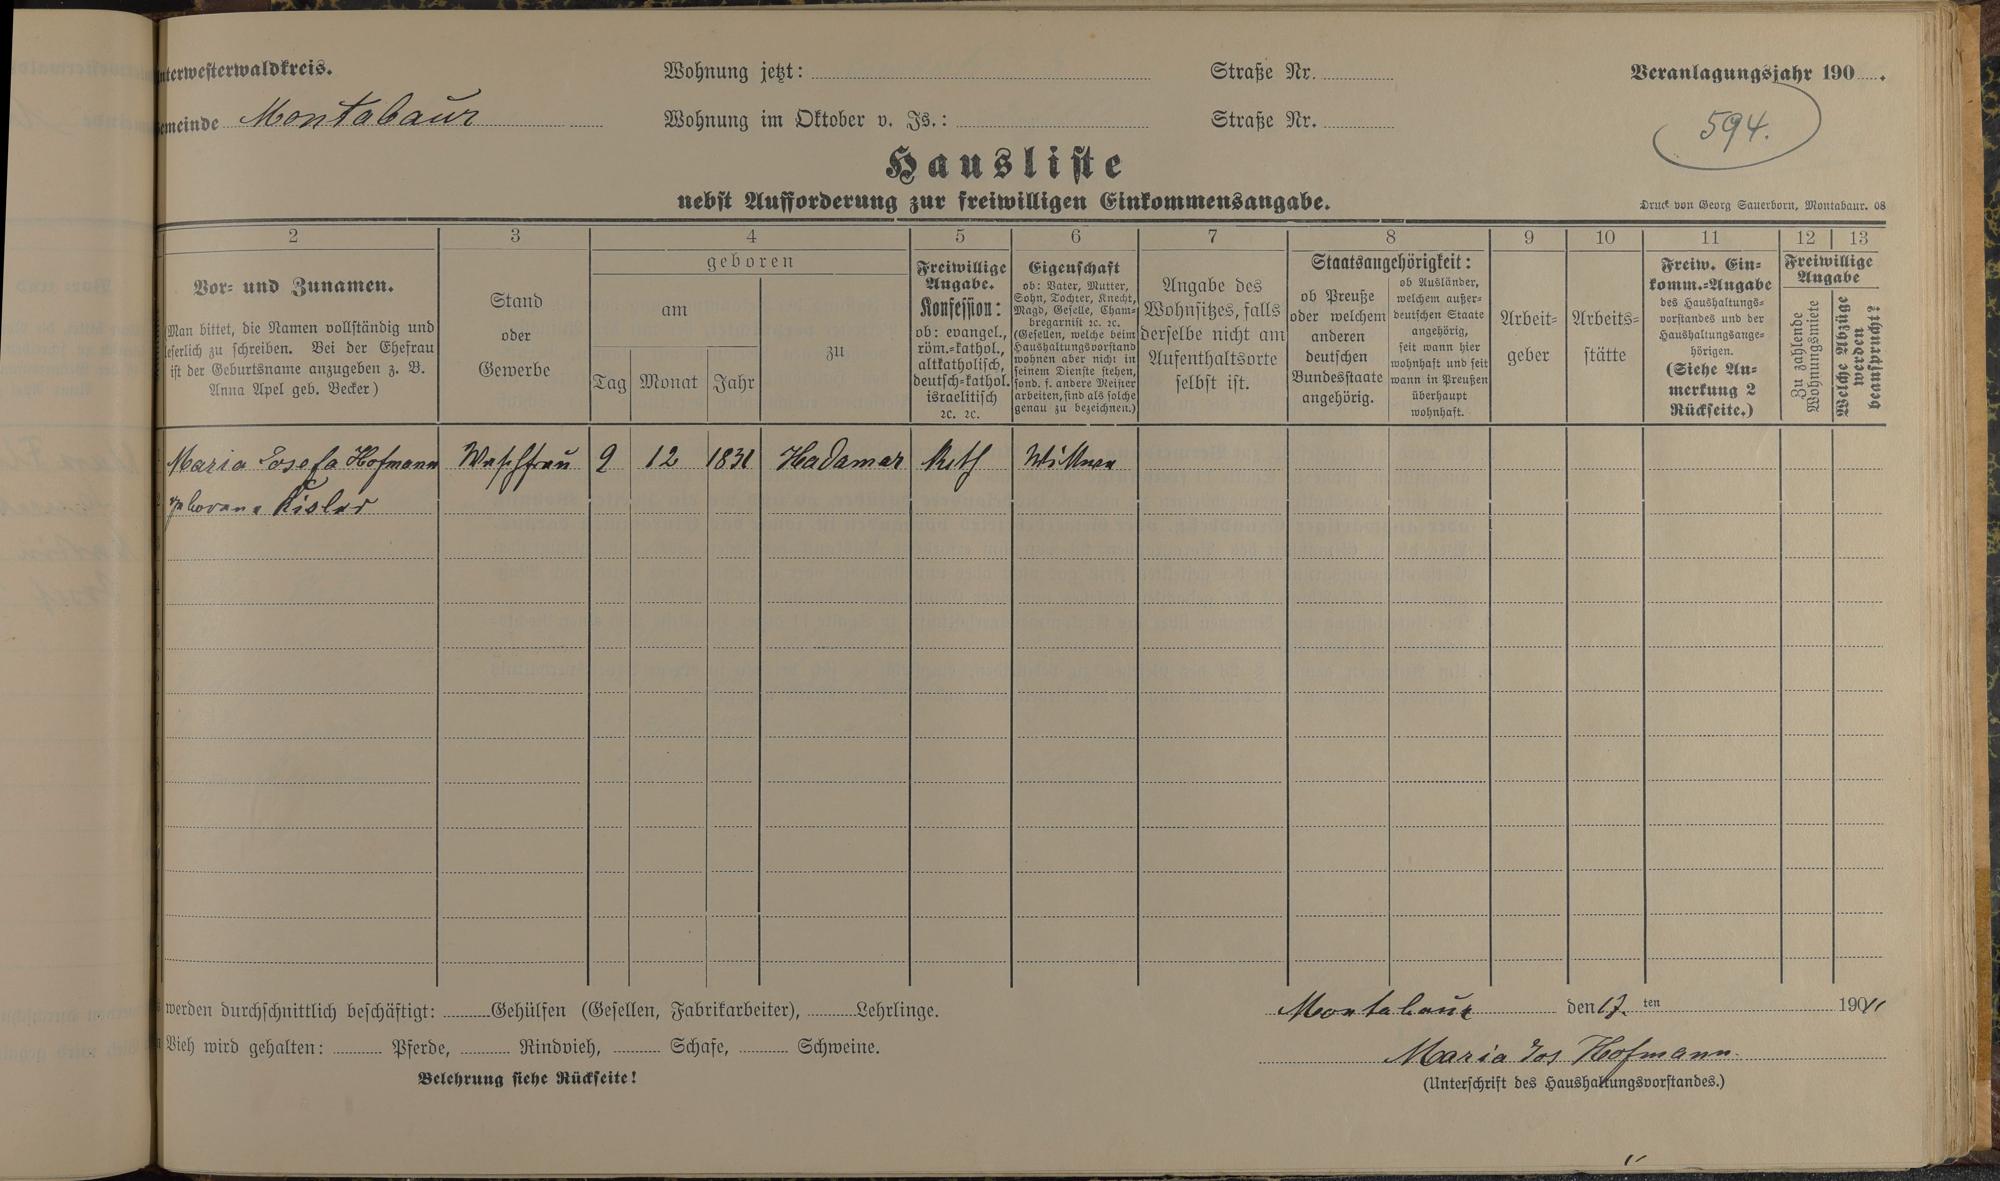 nterwesterwaldkreis.
Wohnung jetzt:
Straße Nr.
Veranlagungsjahr 190 .
emeinde Montabaur
Wohnung im Oktober v. Js.:
Straße Nr.
594.
Hausliste
nebst Aufforderung zur freiwilligen Einkommensangabe.
Druck von Georg Sauerborn, Montabaur. 08
2
3
4
5
6
7
8
9
10
11
12
13
Vor- und Zunamen.
(Man bittet, die Namen vollständig und
leserlich zu schreiben. Bei der Ehefrau
ist der Geburtsname anzugeben z. B.
Anna Apel geb. Becker)
Stand
oder
Gewerbe
geboren
am
Tag
Monat
Jahr
zu
Freiwillige
Angabe.
Konfession:
ob: evangel.,
röm.-kathol.,
altkatholisch,
deutsch-kathol.
israelitisch
ꝛc. ꝛc.
Eigenschaft
ob: Vater, Mutter,
Sohn, Tochter, Knecht,
Magd, Geselle, Cham-
bregarnist ꝛc. ꝛc.
(Gesellen, welche beim
Haushaltungsvorstand
wohnen aber nicht in
seinem Dienste stehen,
sond. f. andere Meister
arbeiten, sind als solche
genau zu bezeichnen.)
Angabe des
Wohnsitzes, falls
derselbe nicht am
Aufenthaltsorte
selbst ist.
Staatsangehörigkeit:
ob Preuße
oder welchem
anderen
deutschen
Bundesstaate
angehörig.
ob Ausländer,
welchem außer-
deutschen Staate
angehörig,
seit wann hier
wohnhaft und seit
wann in Preußen
überhaupt
wohnhaft.
Arbeit-
geber
Arbeits-
stätte
Freiw. Ein-
komm.-Angabe
des Haushaltungs-
vorstandes und der
Haushaltungsange-
hörigen.
(Siehe An-
merkung 2
Rückseite.)
Freiwillige
Angabe
Zu zahlende
Wohnungsmiete
Welche Abzüge
werden
beansprucht?
Maria Josefa Hofmann Waschfrau 9 12 1831 Hadamar Kath Wittwe
geborene Kisler
werden durchschnittlich beschäftigt: Gehülfen (Gesellen, Fabrikarbeiter), Lehrlinge.
Vieh wird gehalten: Pferde, Rindvieh, Schafe, Schweine.
Belehrung siehe Rückseite!
Montabaur den 17. ten 1911
Maria Jos Hofmann
(Unterschrift des Haushaltungsvorstandes.)